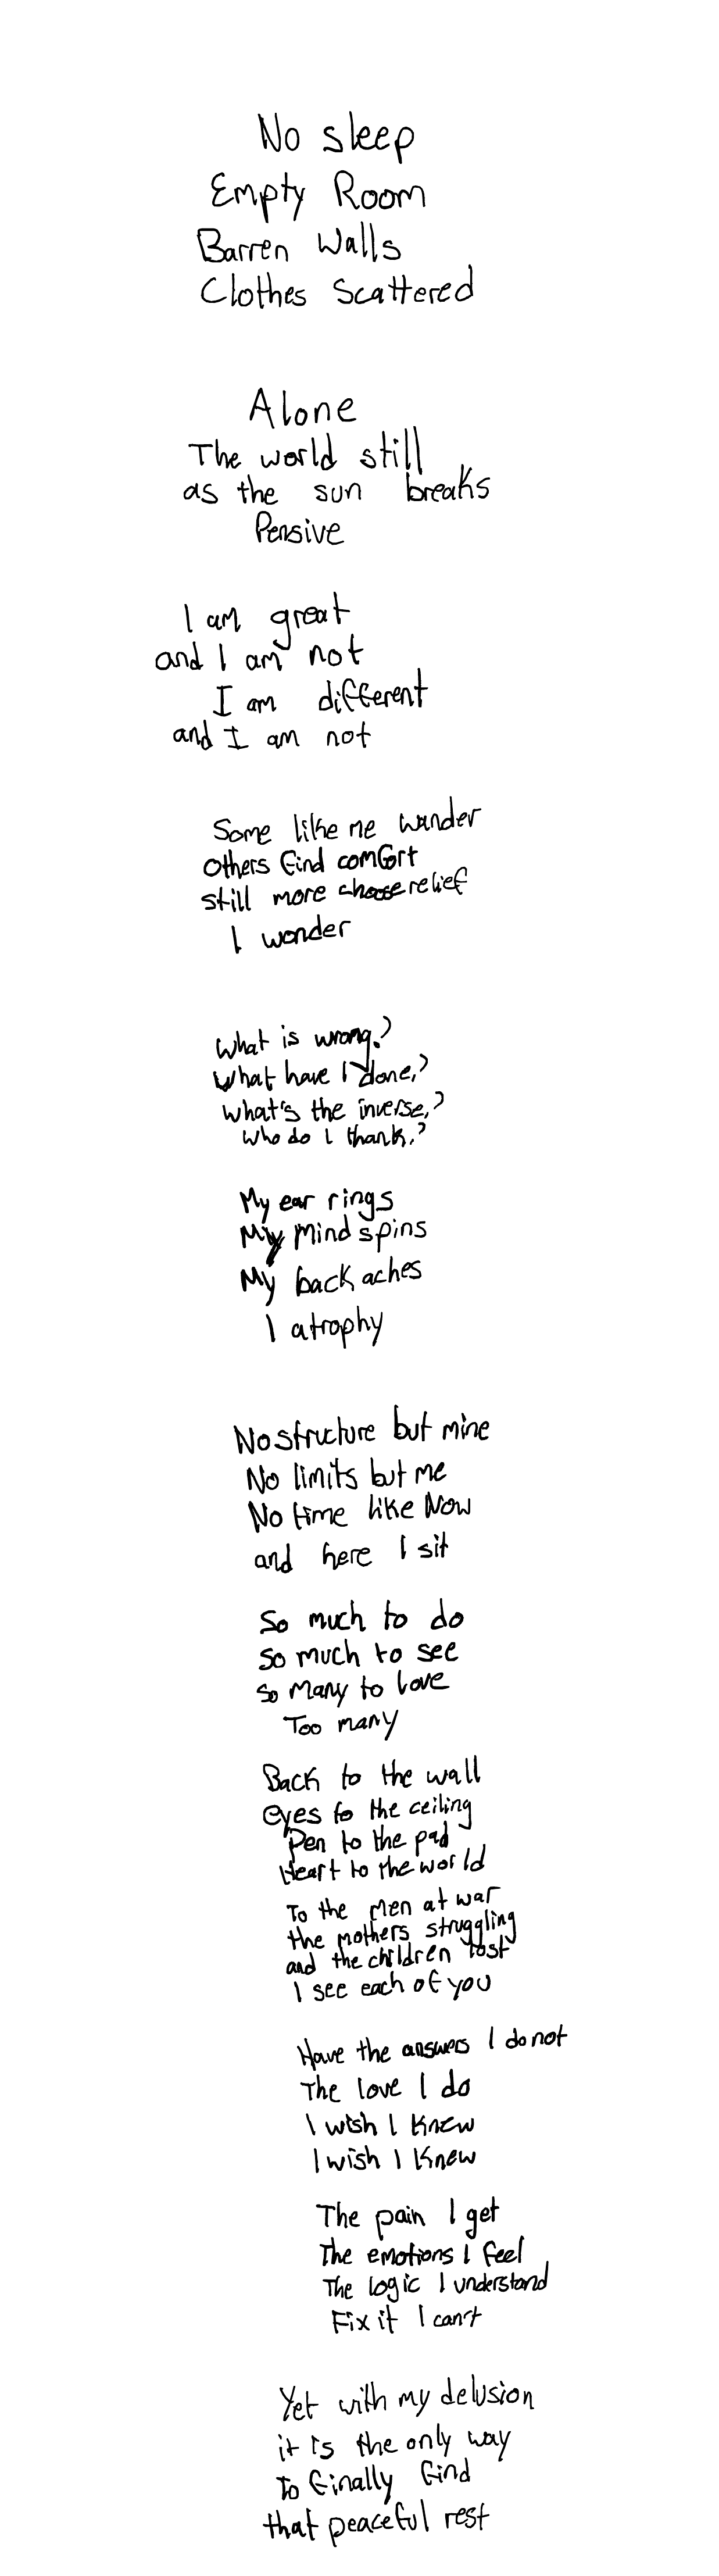 No sleep
Empty Room
Barren Walls
Clothes Scattered
Alone
The world still
as the sun breaks
Pensive
I am great
and I am not
I am different
and I am not
Some like me wander
others find comfort
still more choose relief
I wonder
What is wrong?
What have I done?
What's the inverse?
Who do I thank?
My ear rings
My mind spins
My back aches
I atrophy
No structure but mine
No limits but me
No time like Now
and here I sit
So much to do
so much to see
so many to love
Too many
Back to the wall
eyes to the ceiling
Pen to the pad
Heart to the world
To the men at war
the mothers struggling
and the children lost
I see each of you
Have the answers I do not
The love I do
I wish I knew
I wish I knew
The pain I get
The emotions I feel
The logic I understand
Fix it I can't
Yet with my delusion
it is the only way
To finally find
that peaceful rest